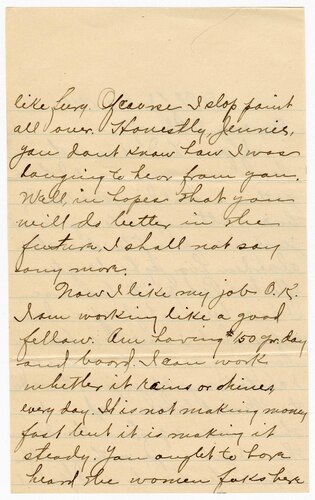 like fury. Ofcourse I slop paint
all over. Honestly, Jennie,
you dont know how I was
longing to hear from you.
Well, in hopes that you
will do better in the
future, I shall not say
any more.
Now I like my job O.K.
I am working like a good
fellow. Am having $1.50 per. day
and board. I can work
whether it rains or shines,
every day. It is not making money
fast but it is making it
steady. You ought to hove
heard the women folks here